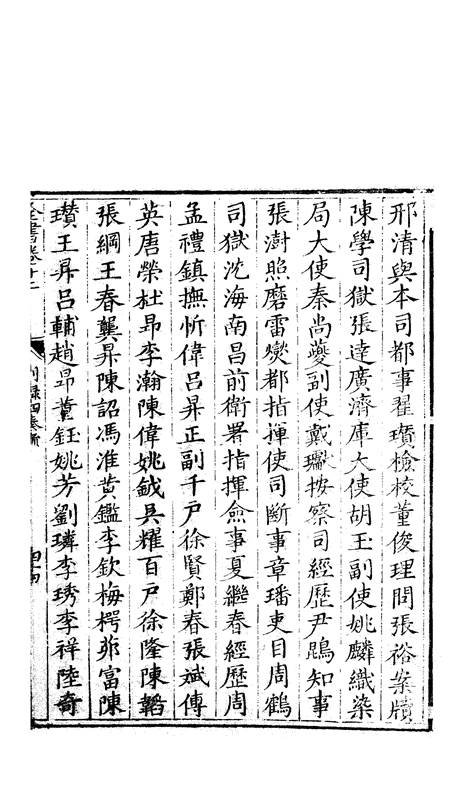 邢清與本司都事翟瓚檢校董俊理問張裕案牘
陳學司獄張達廣濟庫大使胡玉副使姚麟織染
局大使秦尚夔副使戴曦按察司經歷尹鵾知事
張澍照磨雷燮都指揮使司斷事章璠吏目周鶴
司獄沈海南昌前衛署指揮僉事夏繼春經歷周
孟禮鎮撫忻偉呂昇正副千戶徐賢鄭春張斌傅
英唐榮杜昻李瀚陳偉姚鉞吳耀百戶徐隆陳韜
張綱王春龔昇陳詔馮淮黃鑑李欽梅樗茆富陳
瓚王昇呂輔趙昻董鈺姚芳劉璘李琇李祥陸奇
全書卷十二
別錄四奏疏
四十四